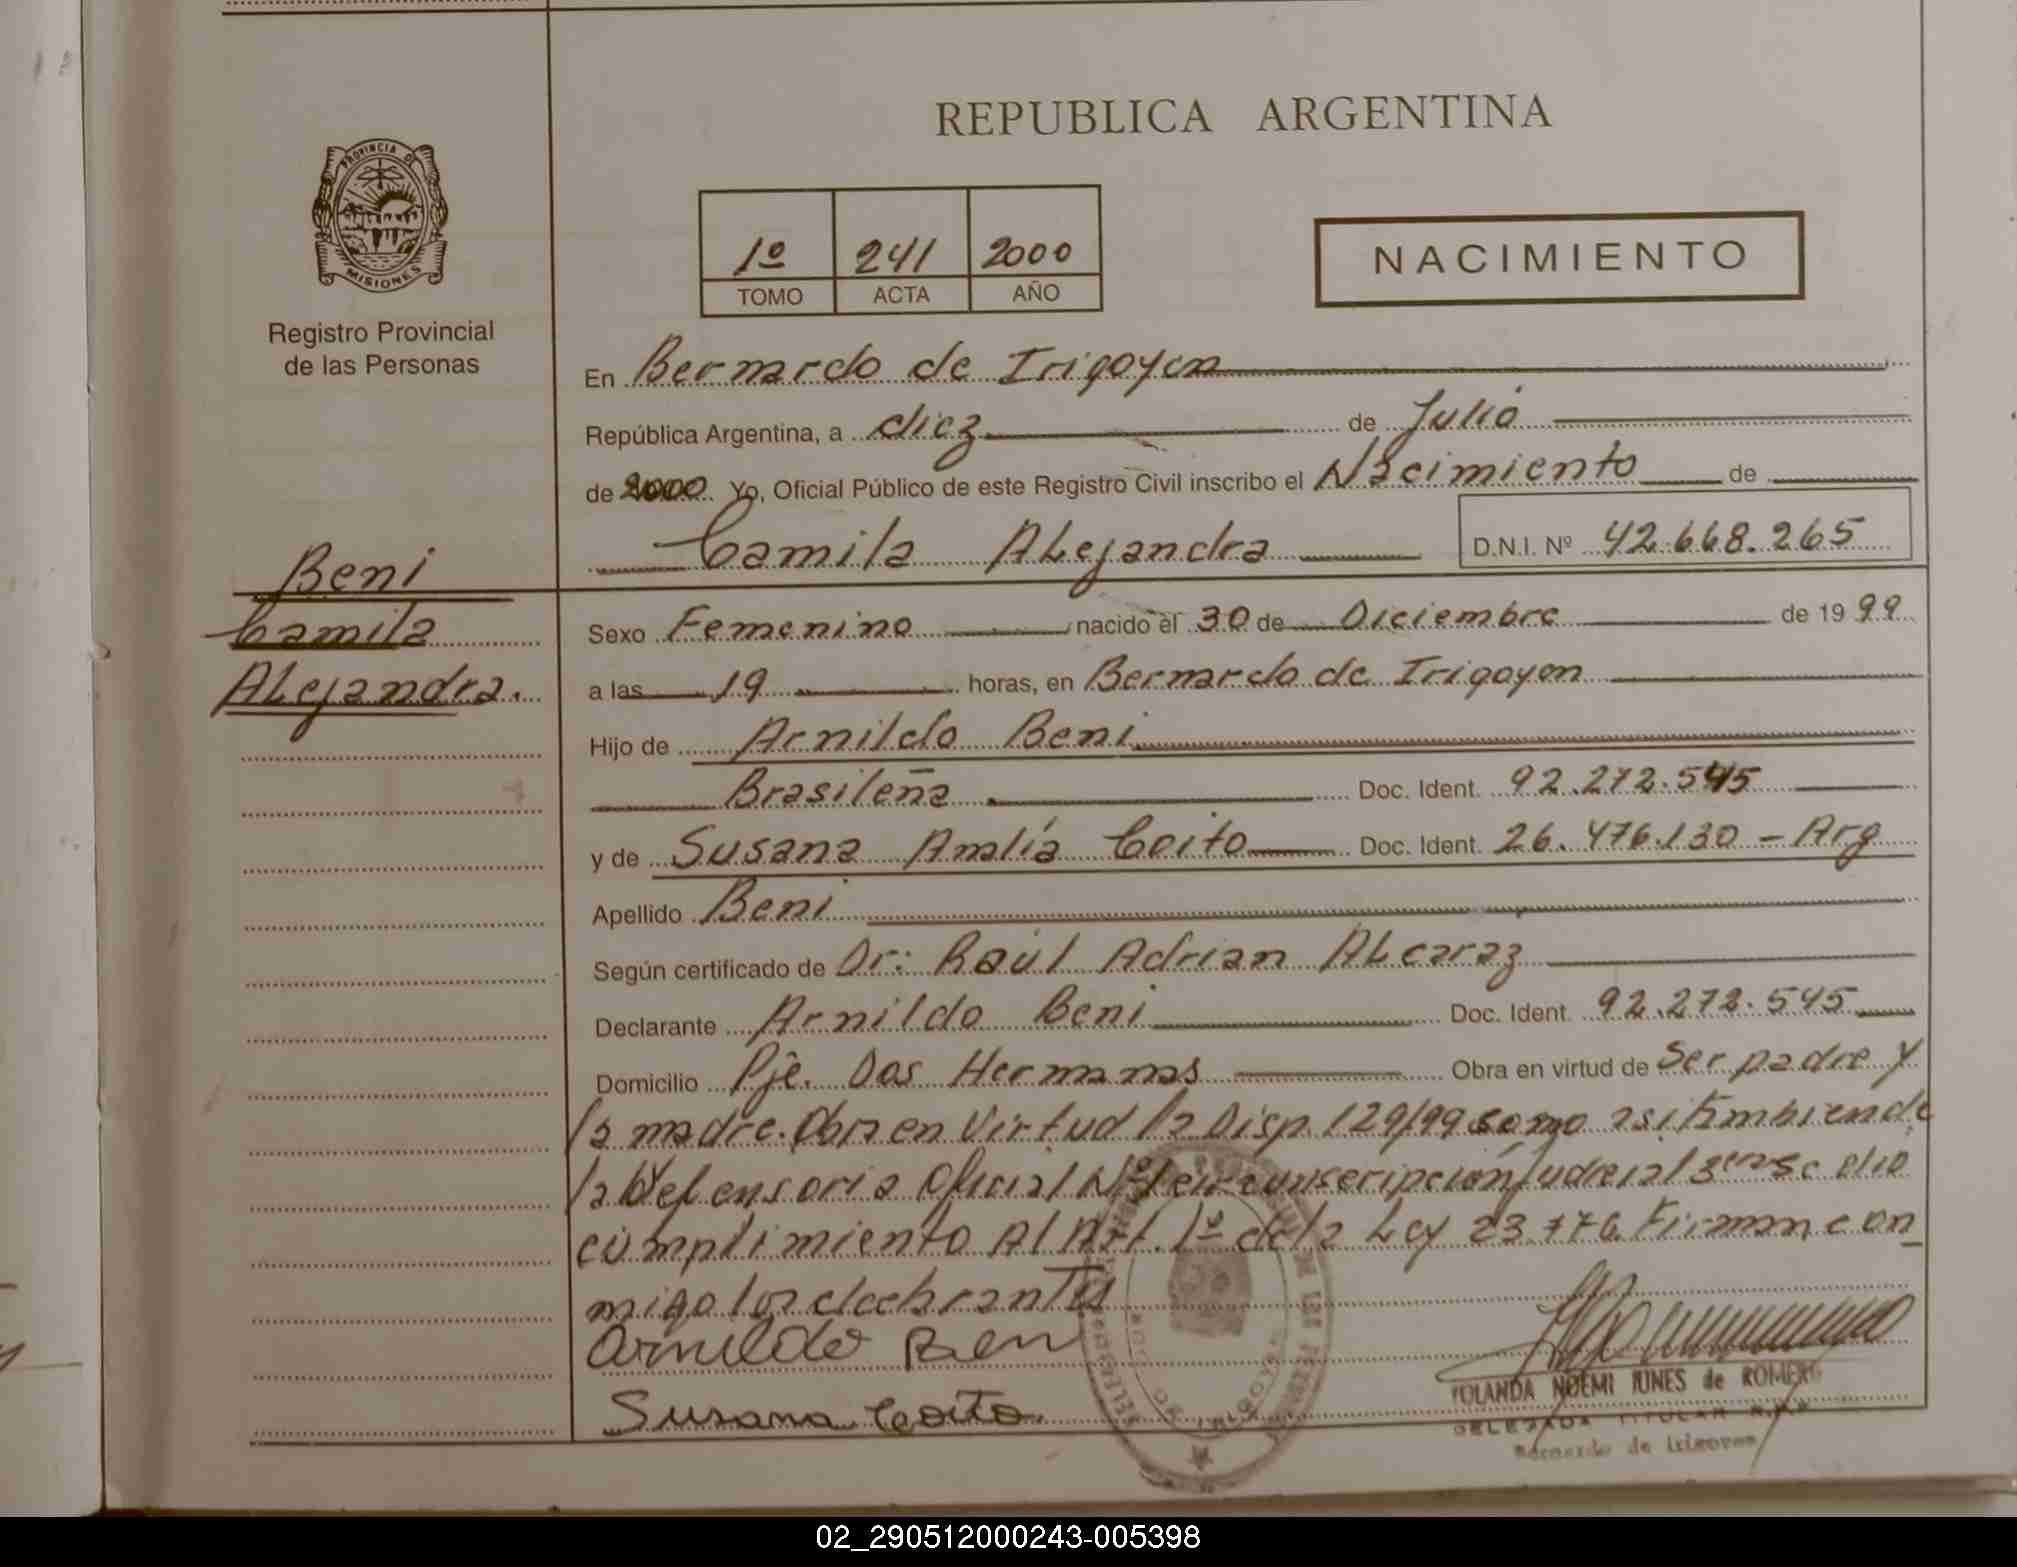 REPUBLICA ARGENTINA
PROVINCIA DE
MISIONES
Registro Provincial
de las Personas
1º 241 2000
TOMO ACTA AÑO
NACIMIENTO
En Bernardo de Irigoyen
República Argentina, a diez de Julio
de 2000 Yo, Oficial Público de este Registro Civil inscribo el Nacimiento de
Camila Alejandra D.N.I. Nº 42.668.265
Beni
Camila
Alejandra.
Sexo Femenino nacido el 30 de Diciembre de 1999
a las 19 horas, en Bernardo de Irigoyen
Hijo de Arnildo Beni
Brasileña Doc. Ident. 92.272.545
y de Susana Amalía Coito Doc. Ident. 26.476.130 - Arg
Apellido Beni
Según certificado de Dr: Raúl Adrian Alcaraz
Declarante Arnildo Beni Doc. Ident. 92.272.545
Domicilio Pje. Dos Hermanas Obra en virtud de Ser padre y
la madre. Obra en Virtud la Disp. 129/99 como asi tambien de
la Defensoria Oficial Nº circunscripción Judicial se dio
cumplimiento Al Art. 1º de la Ley 23.776. Firman con
migo los declarantes
Arnildo Beni
Susana Coito.
YOLANDA NOEMI IUNES de ROMERO
DELEGADA TITULAR R.P.P.
Bernardo de Irigoyen
02_290512000243-005398